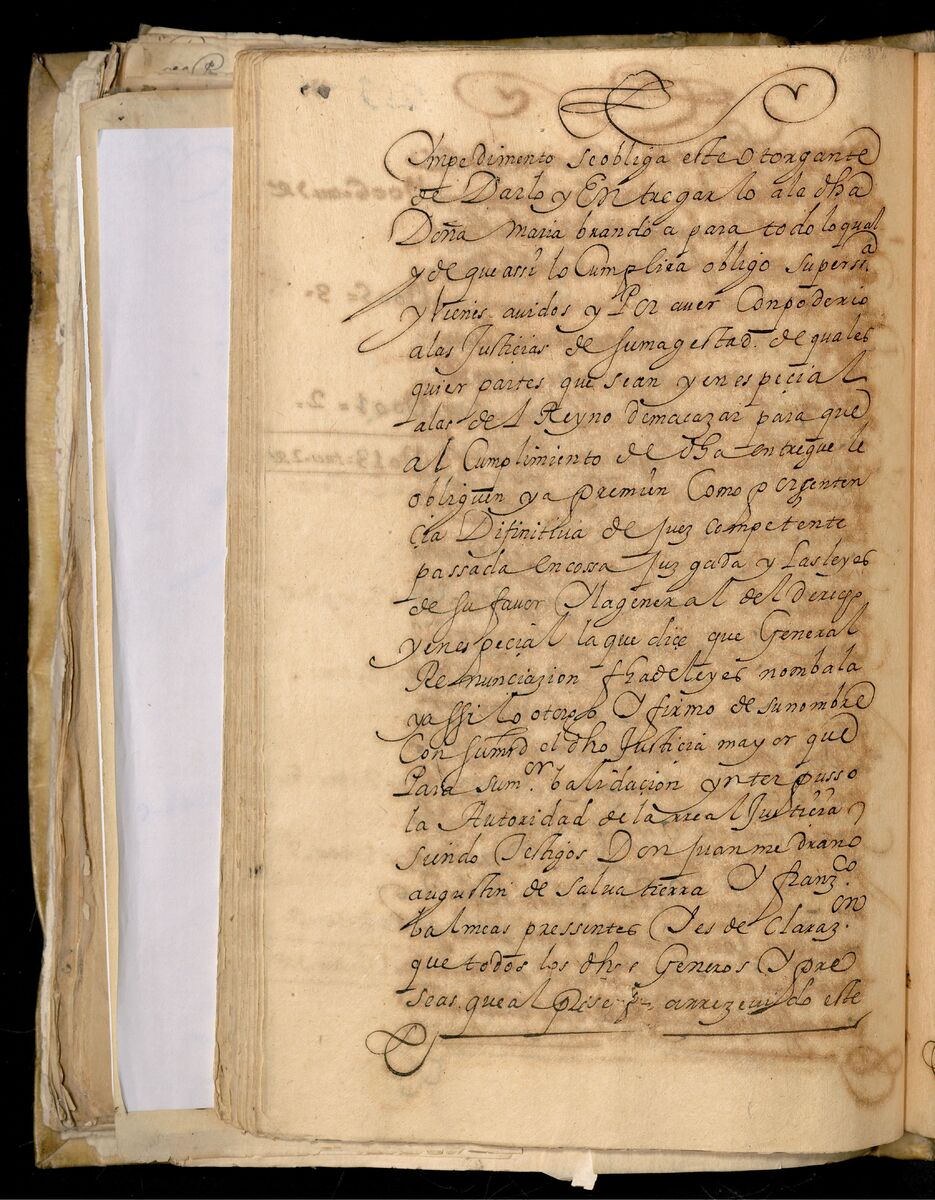 Ympedimento se obliga este Otorgante
de Darlo y Entregarlo a la dha
Doña Maria brando a para todo lo qual
y de que assi lo Cumplira obligo su perss.ª
y Vienes auidos y Por auer Con poderio
a las Justicias de su magestad de quales
quier partes que sean y en especial
a las del Reyno de macazar para que
al Cumplimiento de dha entregue le
obliguen y a premien Como por senten
cia Difinitiua de juez competente
passada en cossa Juzgada y las leyes
de su favor Y la general del derecho
y en especial la que diçe que General
Renunciazion fha de leyes nom bala
y assi lo otorgo Y firmo de su nombre
Con su mrd el dho Justicia mayor que
Para su m.or balidacion ynterpusso
la Autoridad de la rreal Justicia
siendo Testigos Don Juan medrano
augustin de salua tierra Y franz.co
balmeas pressentes Y es de Claraz.on
que todos los dhos Generos Y pre
seas que al arrezeuido este